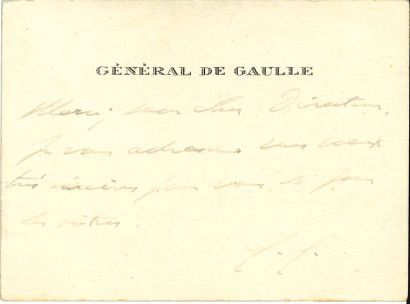 GÉNÉRAL DE GAULLE
Merci, mon cher Directeur,
je vous adresse mes vœux
très sincères pour vous et pour
les vôtres.